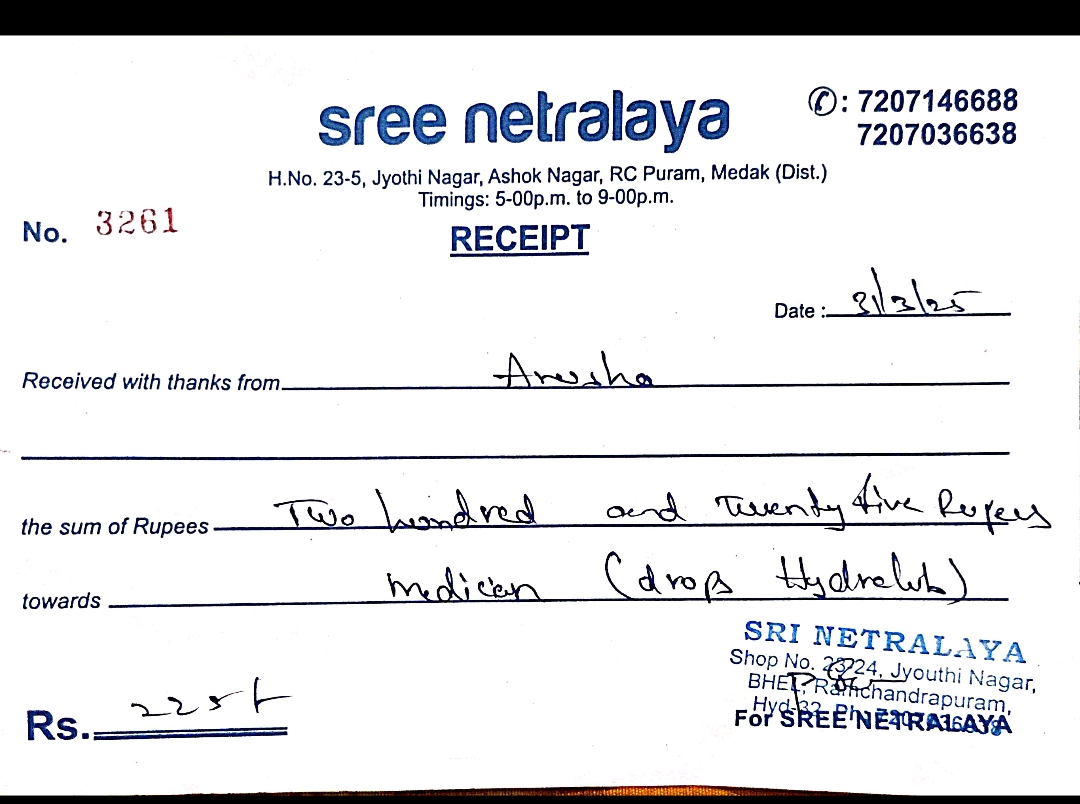 sree netralaya
✆: 7207146688
7207036638
H.No. 23-5, Jyothi Nagar, Ashok Nagar, RC Puram, Medak (Dist.)
Timings: 5-00p.m. to 9-00p.m.
No. 3261
RECEIPT
Date : 31/3/25
Received with thanks from Anusha
the sum of Rupees Two hundred and Twenty five Rupees
towards medican (drops Hydralub)
SRI NETRALAYA
Shop No. 23/24, Jyouthi Nagar,
BHEL, Ramchandrapuram,
Hyd-32. Ph: 7207036638
Rs. 225/-
For SREE NETRALAYA